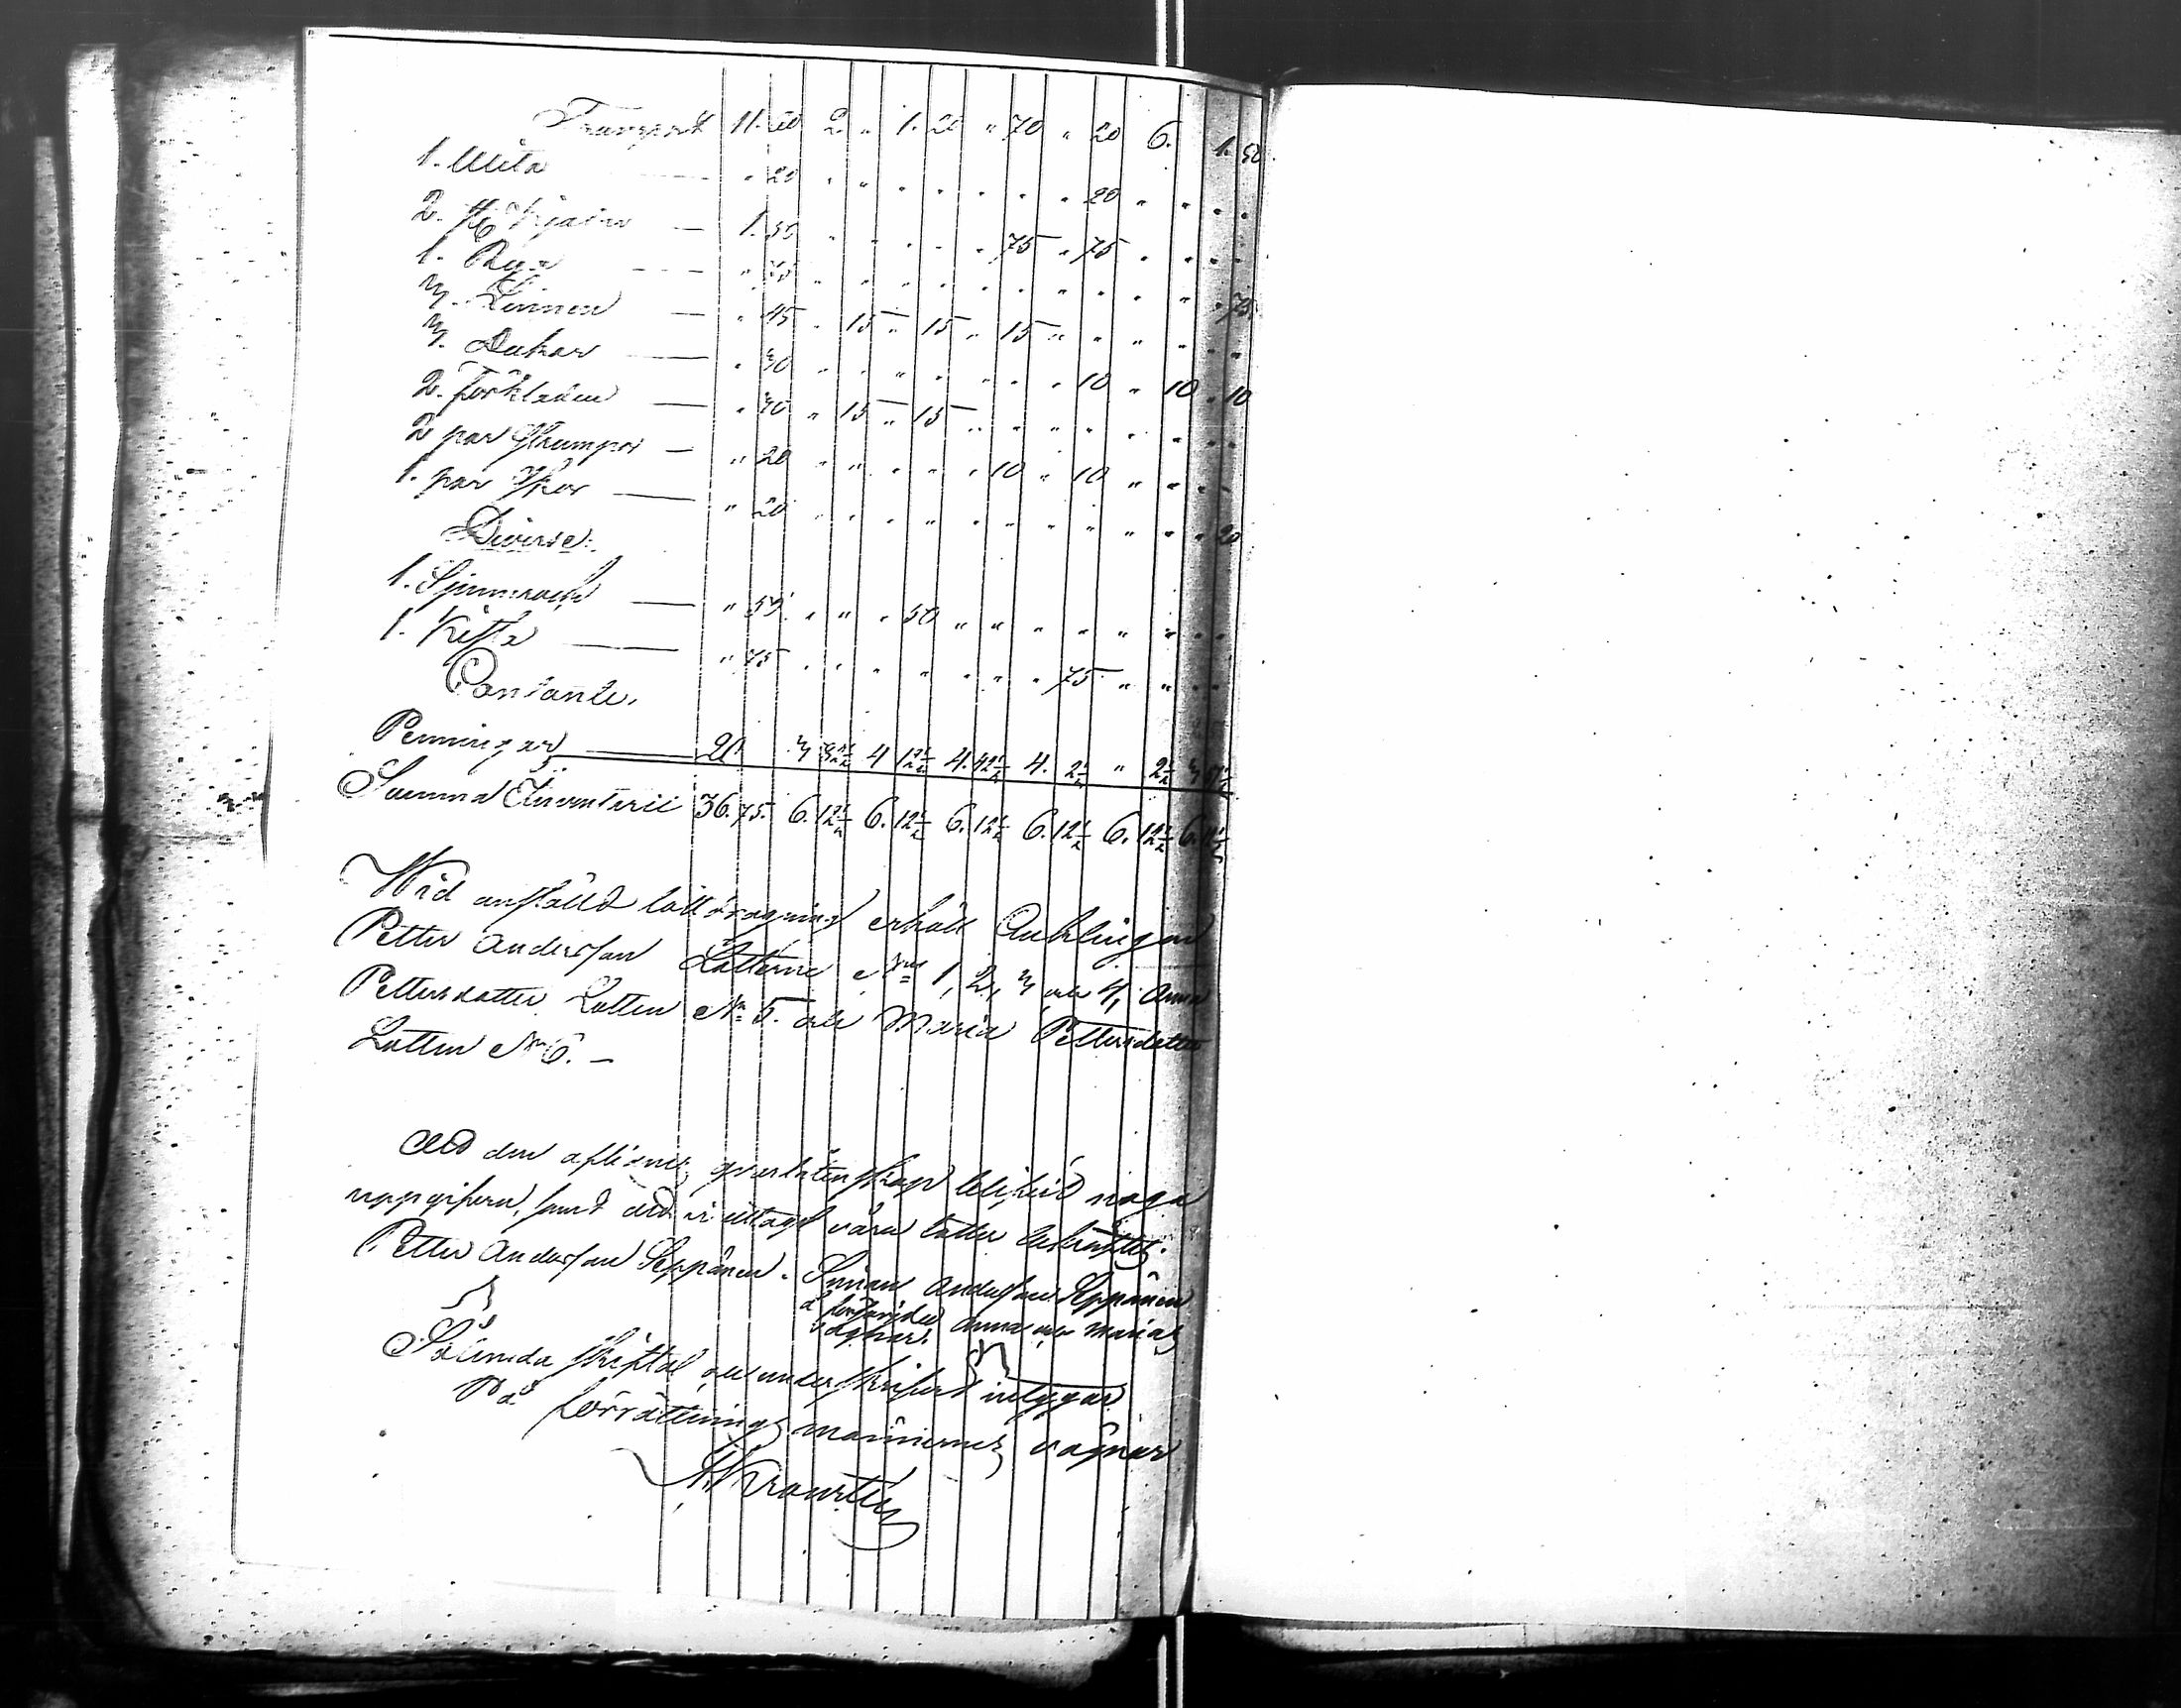 Transport 11. 60 2. " 1. 20 " 70 " 20 6. 1. 50
1. Mita — " 20 " " " " " " " 20 " " " "
2. st. Kjolar — 1. 50 " " " " " 75 " 75 " " " "
1. Röja — " 75 " " " " " " " " " " " 75
3. Linnen — " 45 " 15 " 15 " 15 " " " " " "
3. Dukar — " 30 " " " " " " " 10 " 10 " 10
2. Förkläden — " 30 " 15 " 15 " " " " " " " "
2 par Strumpor — " 20 " " " " " 10 " 10 " " " "
1. par Skor — " 20 " " " " " " " " " " " 20
Diverse.
1. Spinnrock — " 50 " " " 50 " " " " " " " "
1. Kista — " 75 " " " " " " " 75 " " " "
Contante.
Penningar — 20. 3 82½ 4 12½ 4. 42½ 4. 2½ " 2½ 3
Summa Inventarii 36. 75. 6. 12½ 6. 12½ 6. 12½ 6. 12½ 6. 12½ 6. 12½
Wid anstäld lottdragning erhöll Enklingen
Petter Andersson Lotterne No 1, 2, 3 och 4, Anna
Pettersdotter Lotten No 5. och Maria Pettersdotter
Lotten No 6. —
Att den aflidnes qvarlåtenskap blifvit noga
uppgifven, samt att vi uttagit våra lotter bekräftes.
Petter Andersson Seppänen. Simon Andersson Seppänen
å omyndige Anna och Marias
vägnar.
Sålunda skiftat och underskrifvit intygar
På förrättningsmännernes vägnar